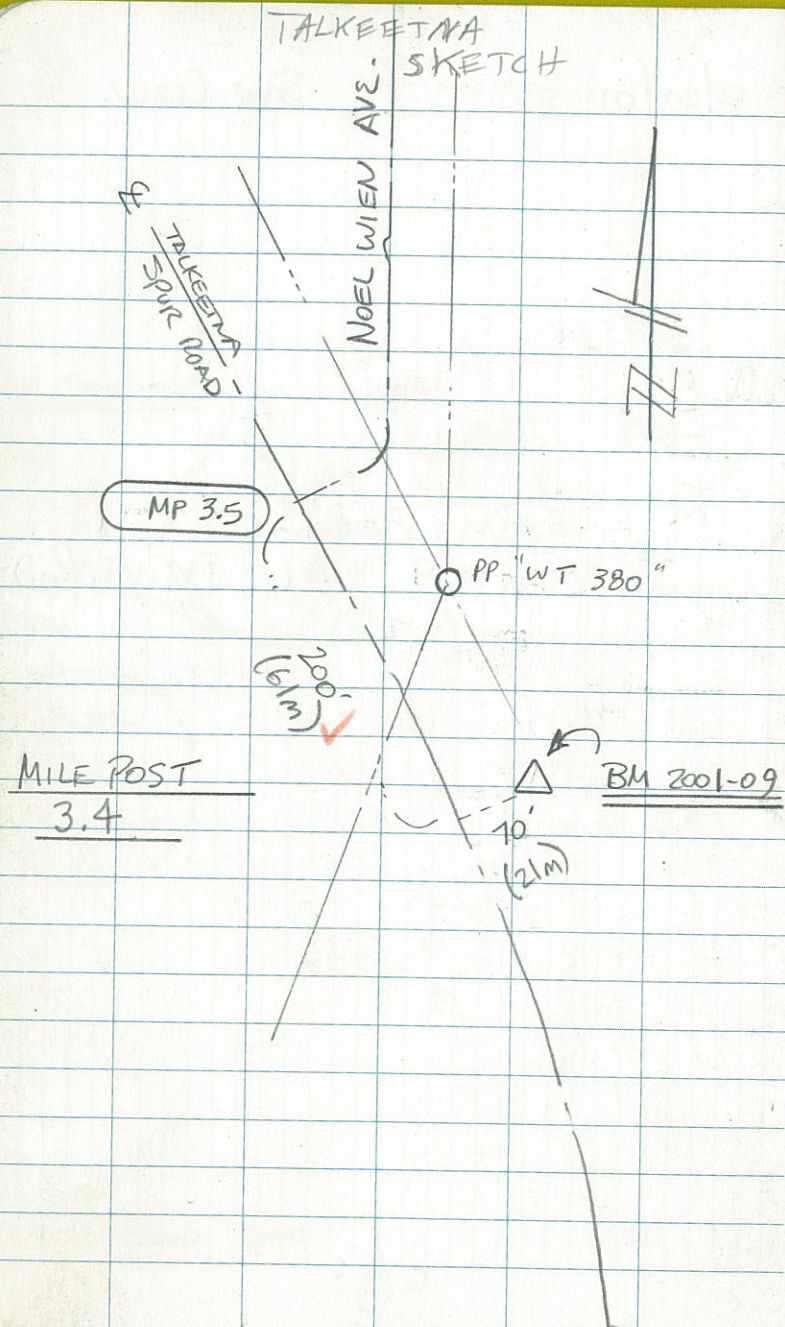 TALKEETNA
SKETCH
NOEL WIEN AVE.
℄
TALKEETNA
SPUR ROAD
N
MP 3.5
PP "WT 380"
200'
(61m)
MILE POST
3.4
BM 2001-09
70'
(21m)